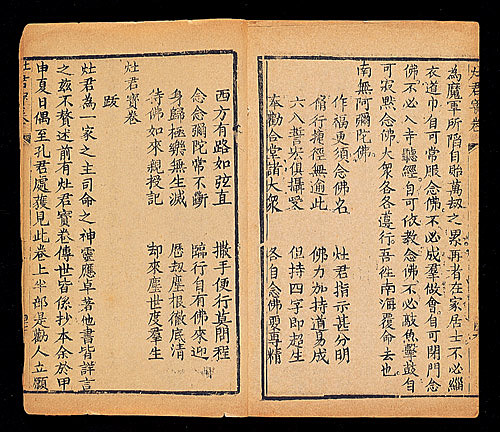 為魔軍所陷自貽萬刼之累再者在家居士不必緇
衣道巾自可常服念佛不必成羣做會自可閉門念
佛不必入寺聽經自可依教念佛不必敲魚擊鼓自
可寂默念佛大衆各各遵行吾徃南海覆命去也
南無阿彌陀佛
作福更須念佛名　灶君指示甚分明
脩行捷徑無逾此　佛力加持道易成
六八誓宏俱攝愛　但持四字即超生
奉勸合堂諸大衆　各自念佛要專精
西方有路如弦直　撒手便行莫問程
念念彌陀常不斷　臨行自有佛來迎
身歸極樂無生滅　歷刼塵根徹底清
待佛如來親授記　却來塵世度羣生
灶君寶卷
跋
灶君為一家之主司命之神靈應卓著他書皆詳言
之茲不贅述前有灶君寶卷傳世皆係抄本余於甲
申夏日偶至孔君處獲見此卷上半部是勸人立願